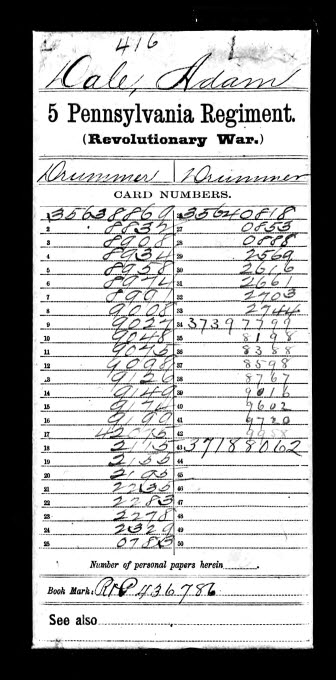 416
Dale, Adam
5 Pennsylvania Regiment.
(Revolutionary War.)
Drummer | Drummer
CARD NUMBERS.
1 35638869 26 35640818
2 8832 27 0853
3 8908 28 0888
4 8934 29 2569
5 8958 30 2616
6 8974 31 2661
7 8991 32 2703
8 9008 33 2744
9 9027 34 37397799
10 9048 35 8198
11 9075 36 8388
12 9098 37 8598
13 9126 38 8767
14 9149 39 9016
15 9174 40 9602
16 9199 41 9720
17 42075 42 9958
18 2115 43 37188062
19 2155 44
20 2195 45
21 2235 46
22 2283 47
23 2278 48
24 2329 49
25 0783 50
Number of personal papers herein
Book Mark: R&P 436,786
See also